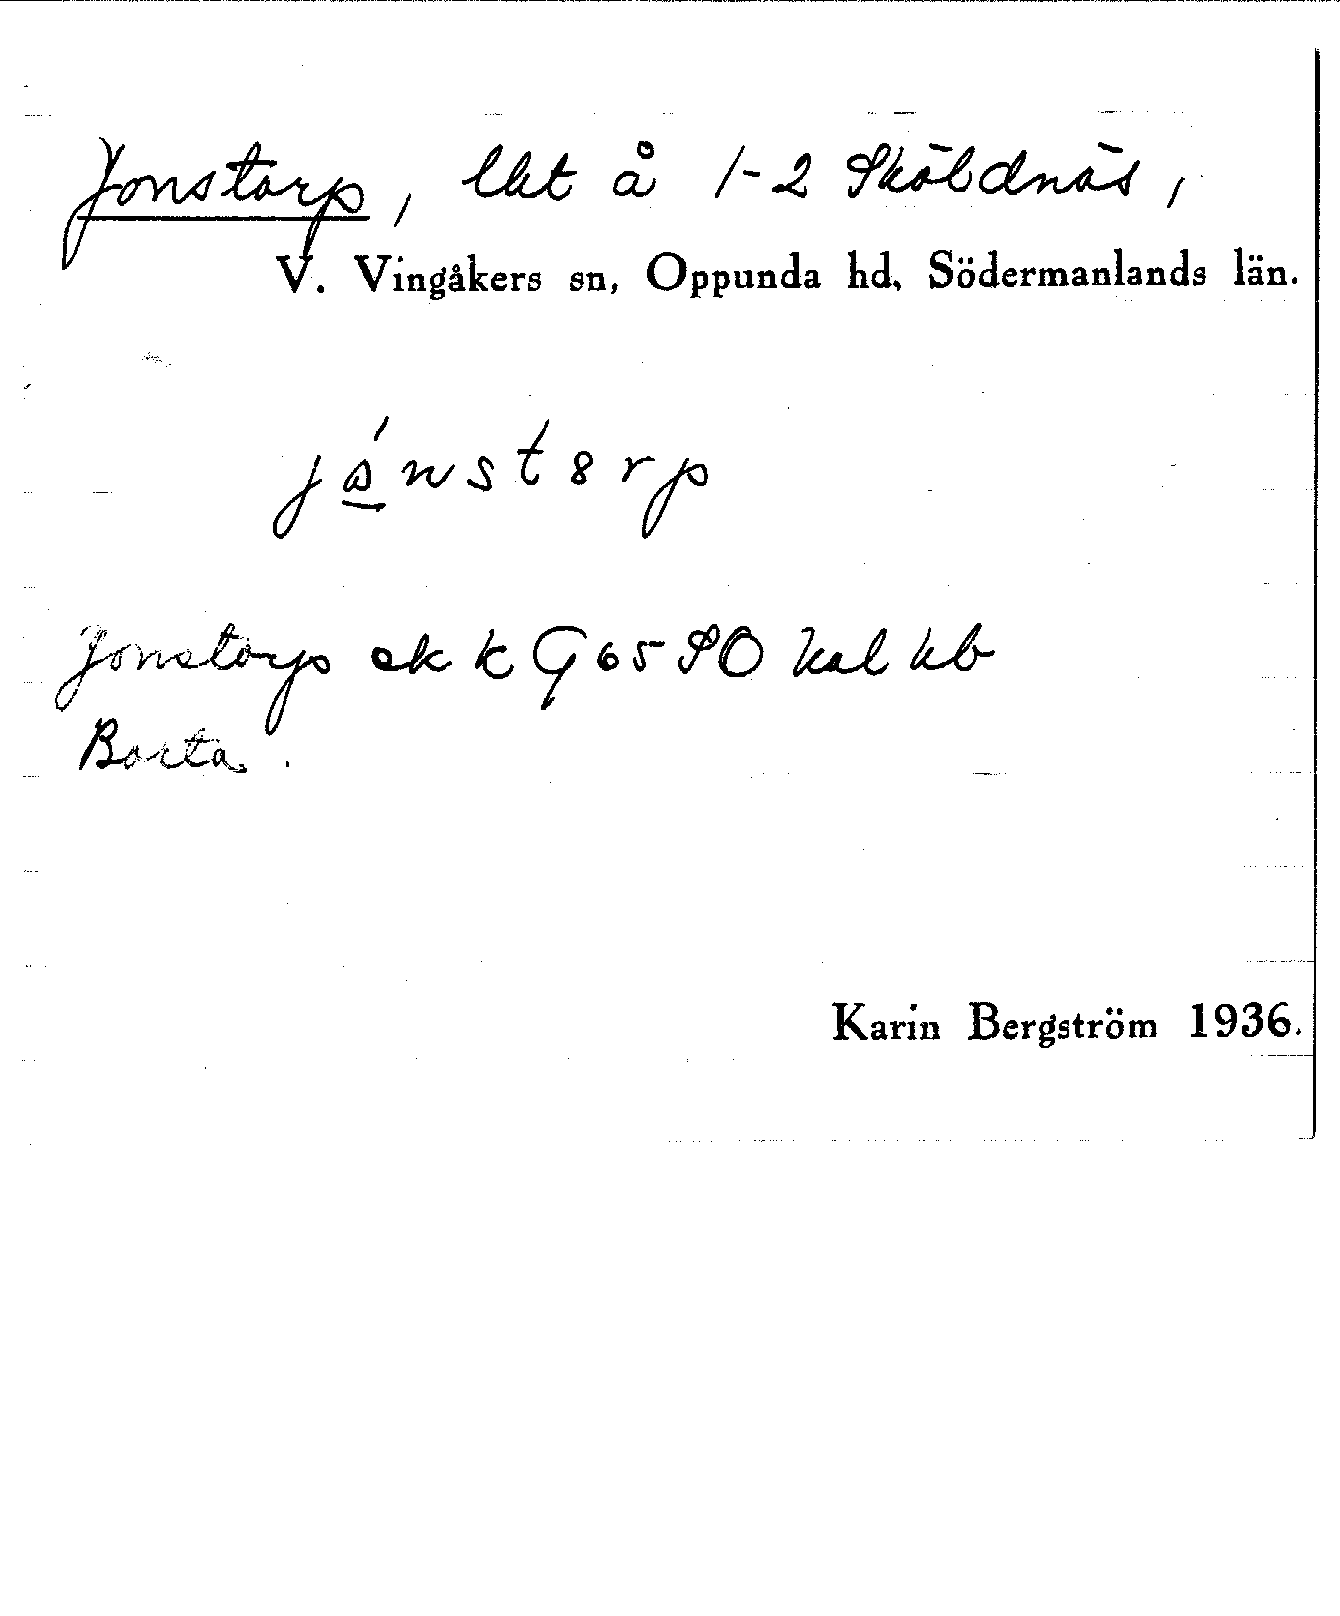 Jonstorp, lht å 1-2 Sköldnäs,
V. Vingåkers sn, Oppunda hd, Södermanlands län.
jånstɞrp
Jonstorp ek k G65 SO kal kb
Borta.
Karin Bergström 1936.